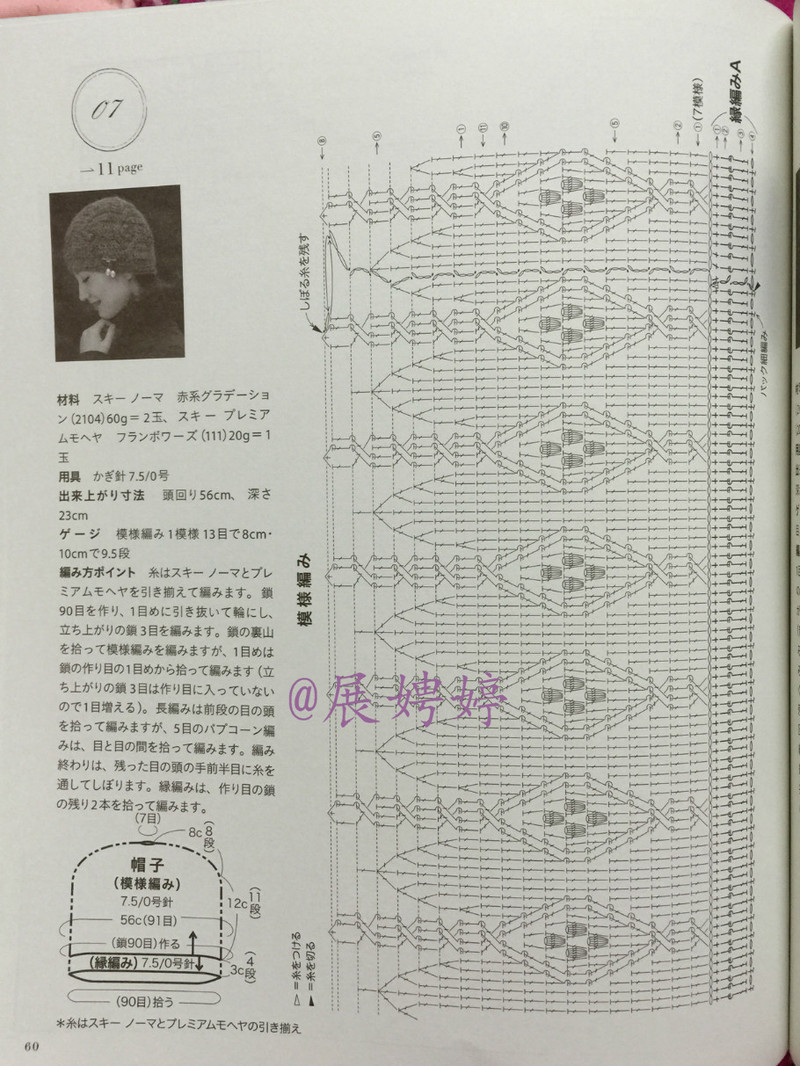 07
→11 page
材料　スキー ノーマ　赤系グラデーショ
ン(2104)60g＝2玉、スキー プレミア
ムモヘヤ　フランボワーズ(111)20g＝1
玉
用具　かぎ針7.5/0号
出来上がり寸法　頭回り56cm、深さ
23cm
ゲージ　模様編み1模様13目で8cm・
10cmで9.5段
編み方ポイント　糸はスキー ノーマとプレ
ミアムモヘヤを引き揃えて編みます。鎖
90目を作り、1目めに引き抜いて輪にし、
立ち上がりの鎖3目を編みます。鎖の裏山
を拾って模様編みを編みますが、1目めは
鎖の作り目の1目めから拾って編みます(立
ち上がりの鎖3目は作り目に入っていない
ので1目増える)。長編みは前段の目の頭
を拾って編みますが、5目のパプコーン編
みは、目と目の間を拾って編みます。編み
終わりは、残った目の頭の手前半目に糸を
通してしぼります。縁編みは、作り目の鎖
の残り2本を拾って編みます。
(7目)
8c(8段)
帽子
(模様編み)
7.5/0号針
56c(91目)
12c(11段)
(鎖90目)作る
(縁編み)7.5/0号針
3c(4段)
(90目)拾う
＊糸はスキー ノーマとプレミアムモヘヤの引き揃え
60
模様編み
しぼる糸を残す
▷＝糸をつける
▶＝糸を切る
←⑧
→⑤
→①
←⑪
→⑩
→⑤
←②
→①(7模様)
縁編みA
→①
←②
→③
←④
バック細編み
@展娉婷